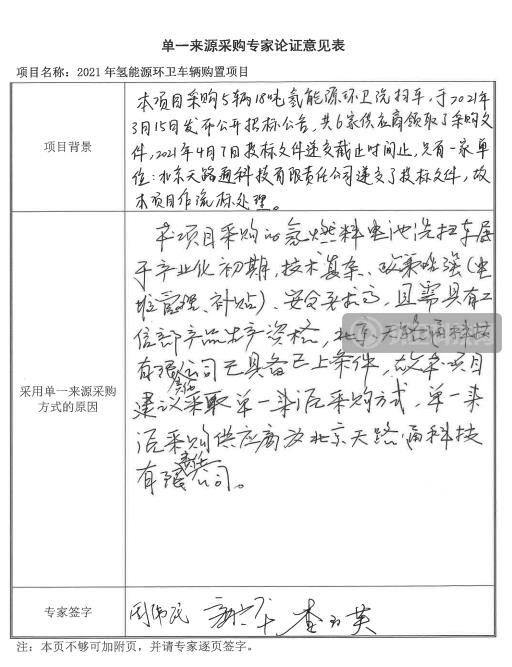 单一来源采购专家论证意见表
项目名称：2021 年氢能源环卫车辆购置项目
项目背景
本项目采购5辆18吨氢能源环卫洗扫车，于2021年
3月15日发布公开招标公告，共6家供应商领取了采购文
件，2021年4月7日投标文件递交截止时间止，只有一家单
位：北京天路通科技有限责任公司递交了投标文件，故
本项目作流标处理。
采用单一来源采购
方式的原因
本项目采购的氢燃料电池洗扫车属
于产业化初期，技术复杂、政策性强（电
堆管理、补贴）、安全要求高，且需具有工
信部产品生产资格，北京天路通科技
有限责任公司已具备已上条件，故本项目
建议采取单一来源采购方式，单一来
源采购供应商为北京天路通科技
有限责任公司。
专家签字
注：本页不够可加附页，并请专家逐页签字。